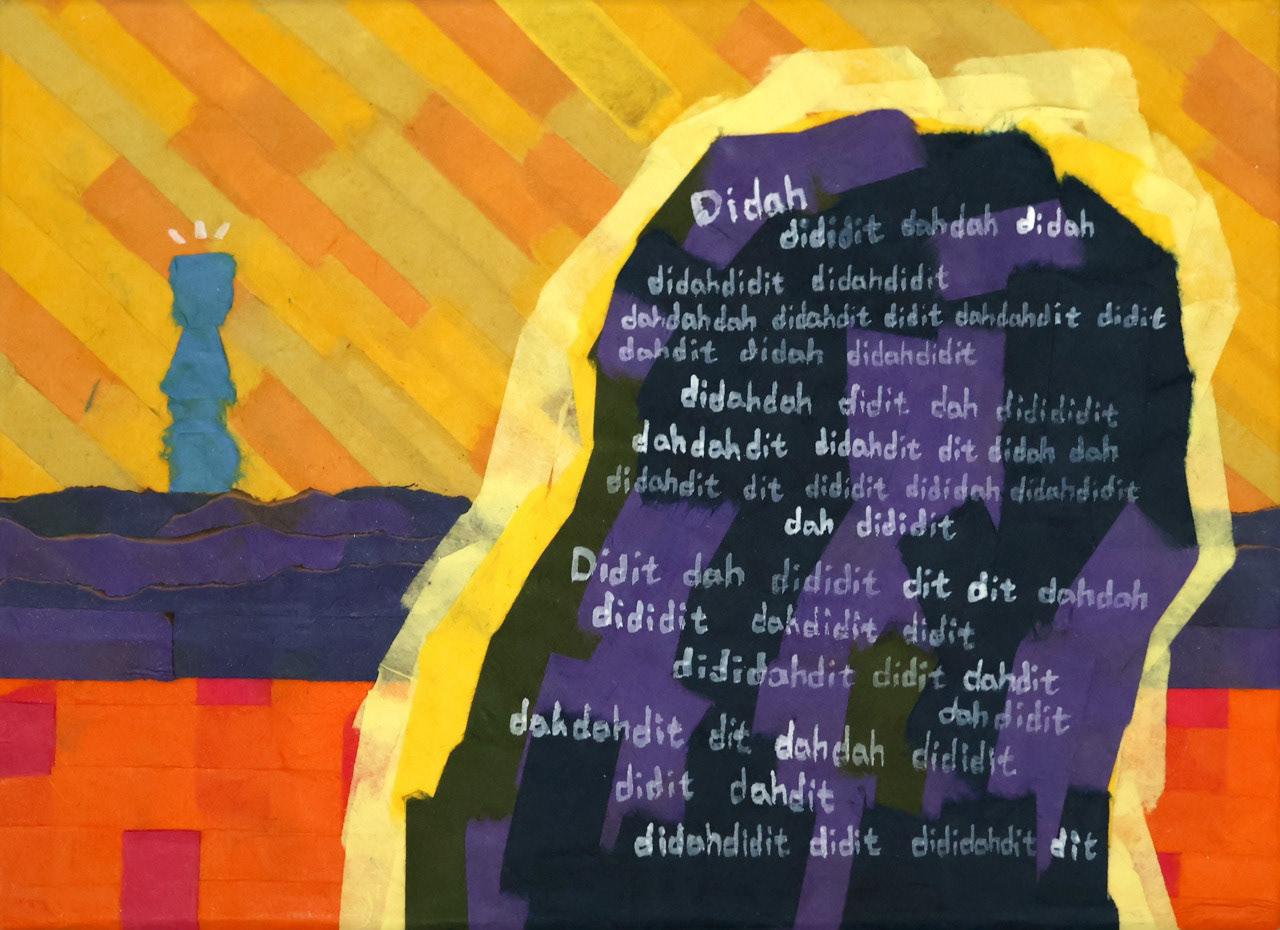 Didah
dididit dahdah didah
didahdidit didahdidit
dahdahdah didahdit didit dahdahdit didit
dahdit didah didahdidit
didahdah didit dah didididit
dahdahdit didahdit dit didah dah
didahdit dit dididit dididah didahdidit
dah dididit
Didit dah dididit dit dit dahdah
dididit dahdidit didit
dididahdit didit dahdit
dahdidit
dahdahdit dit dahdah dididit
didit dahdit
didahdidit didit dididahdit dit